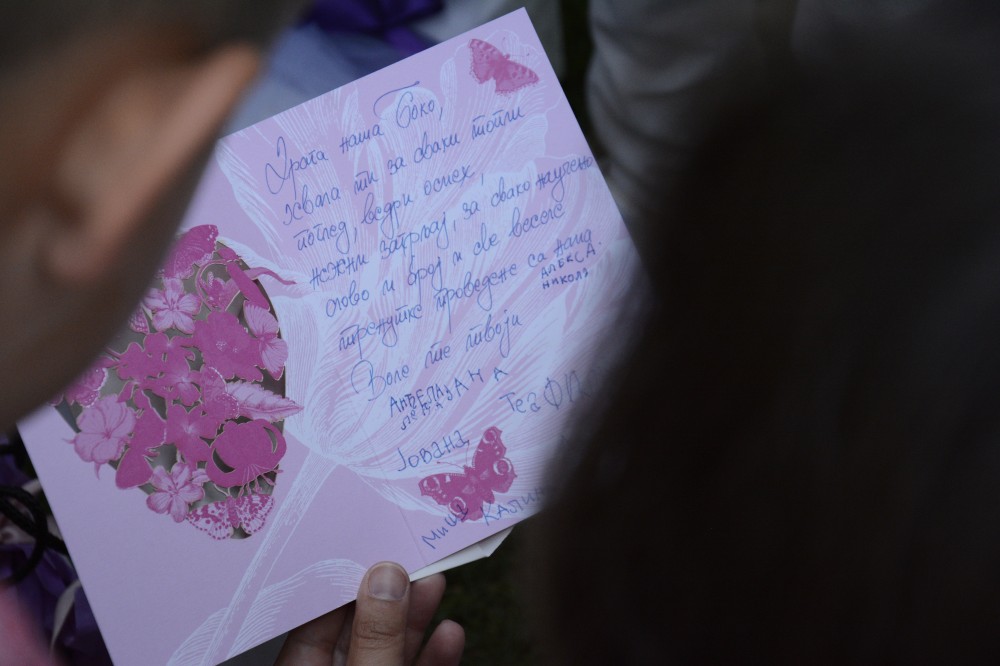 Драга наша Боко,
хвала ти за сваки топли
поглед, ведри осмех,
нежни загрљај, за свако научено
слово и број и све веселе
тренутке проведене са нама
Воле те твоји
АЛЕКСА
НИКОЛА
АНЂЕЛА ЈАНА
ЛЕНА
Теа ФИ
Јована
Миша КАЛИН